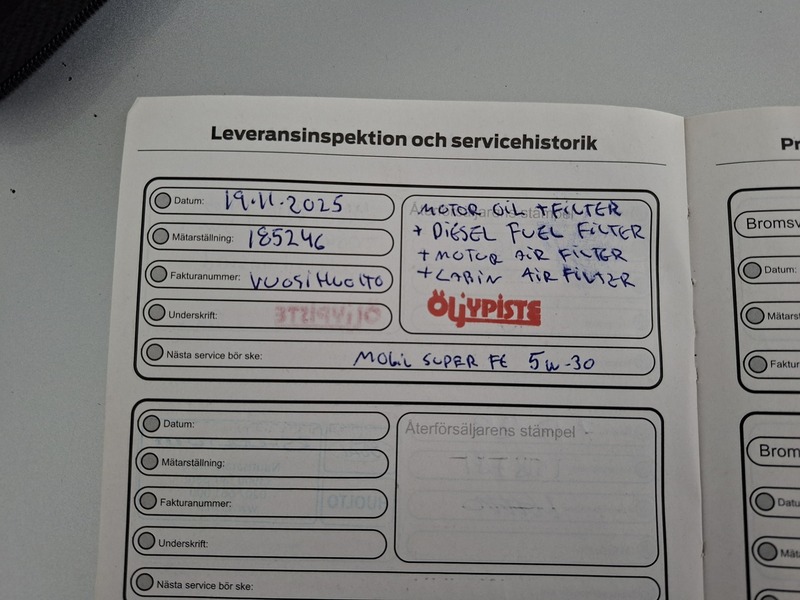 Leveransinspektion och servicehistorik
Datum: 19.11.2025
Mätarställning: 185246
Fakturanummer: VUOSIHUOLTO
Underskrift:
MOTOR OIL + FILTER
+ DIESEL FUEL FILTER
+ MOTOR AIR FILTER
+ CABIN AIR FILTER
ÖLJYPISTE
Nästa service bör ske: MOBIL SUPER FE 5W-30
Datum:
Mätarställning:
Fakturanummer:
Underskrift:
Återförsäljarens stämpel
Nästa service bör ske:
Pr
Bromsv
Datum:
Mätarst
Faktur
Broms
Datu
Mät